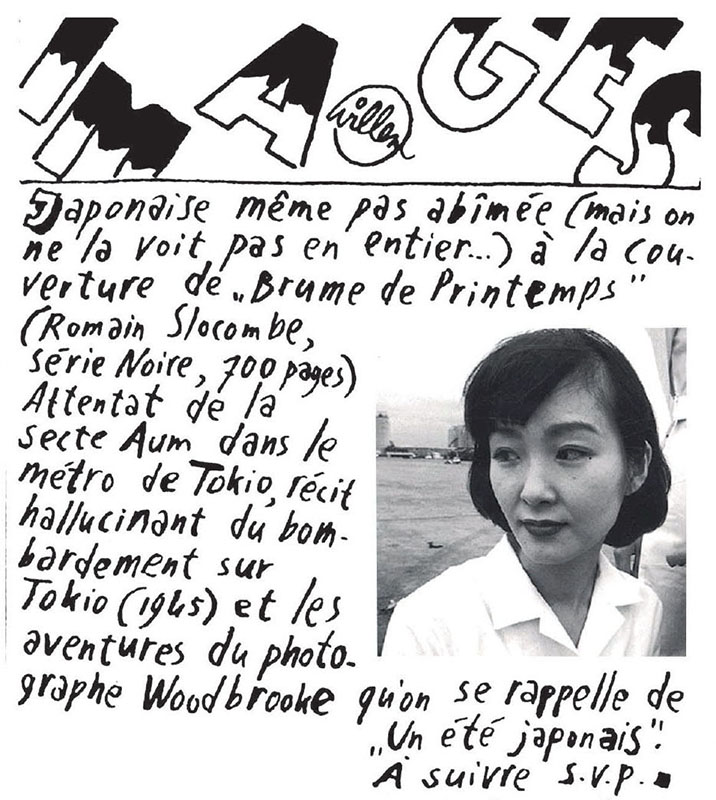 IMAGES
Willem
Japonaise même pas abîmée (mais on
ne la voit pas en entier...) à la cou-
verture de „Brume de Printemps"
(Romain Slocombe,
série Noire, 700 pages)
Attentat de la
secte Aum dans le
métro de Tokio, récit
hallucinant du bom-
bardement sur
Tokio (1945) et les
aventures du photo-
graphe Woodbrooke qu'on se rappelle de
„Un été japonais".
À suivre s.v.p.